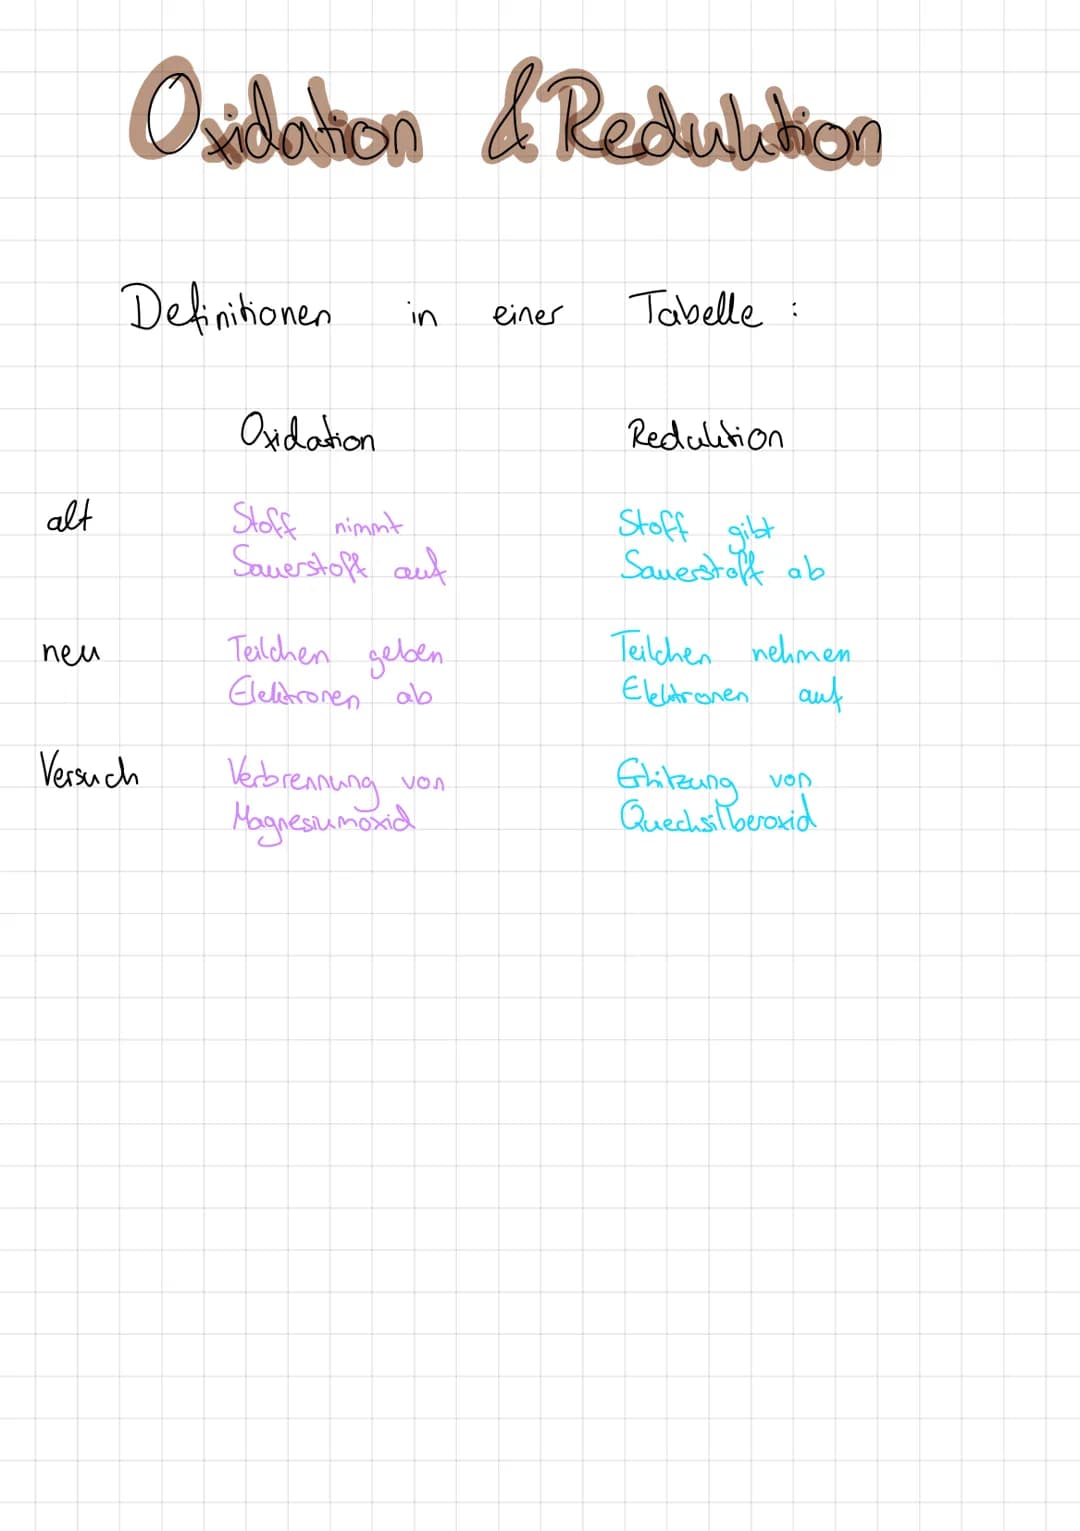 Oxidation & Reduktion
Definitionen in einer Tabelle :
Oxidation Reduktion
alt Stoff nimmt Stoff gibt
Sauerstoff auf Sauerstoff ab
neu Teilchen geben Teilchen nehmen
Elektronen ab Elektronen auf
Versuch Verbrennung von Erhitzung von
Magnesiumoxid Quecksilberoxid